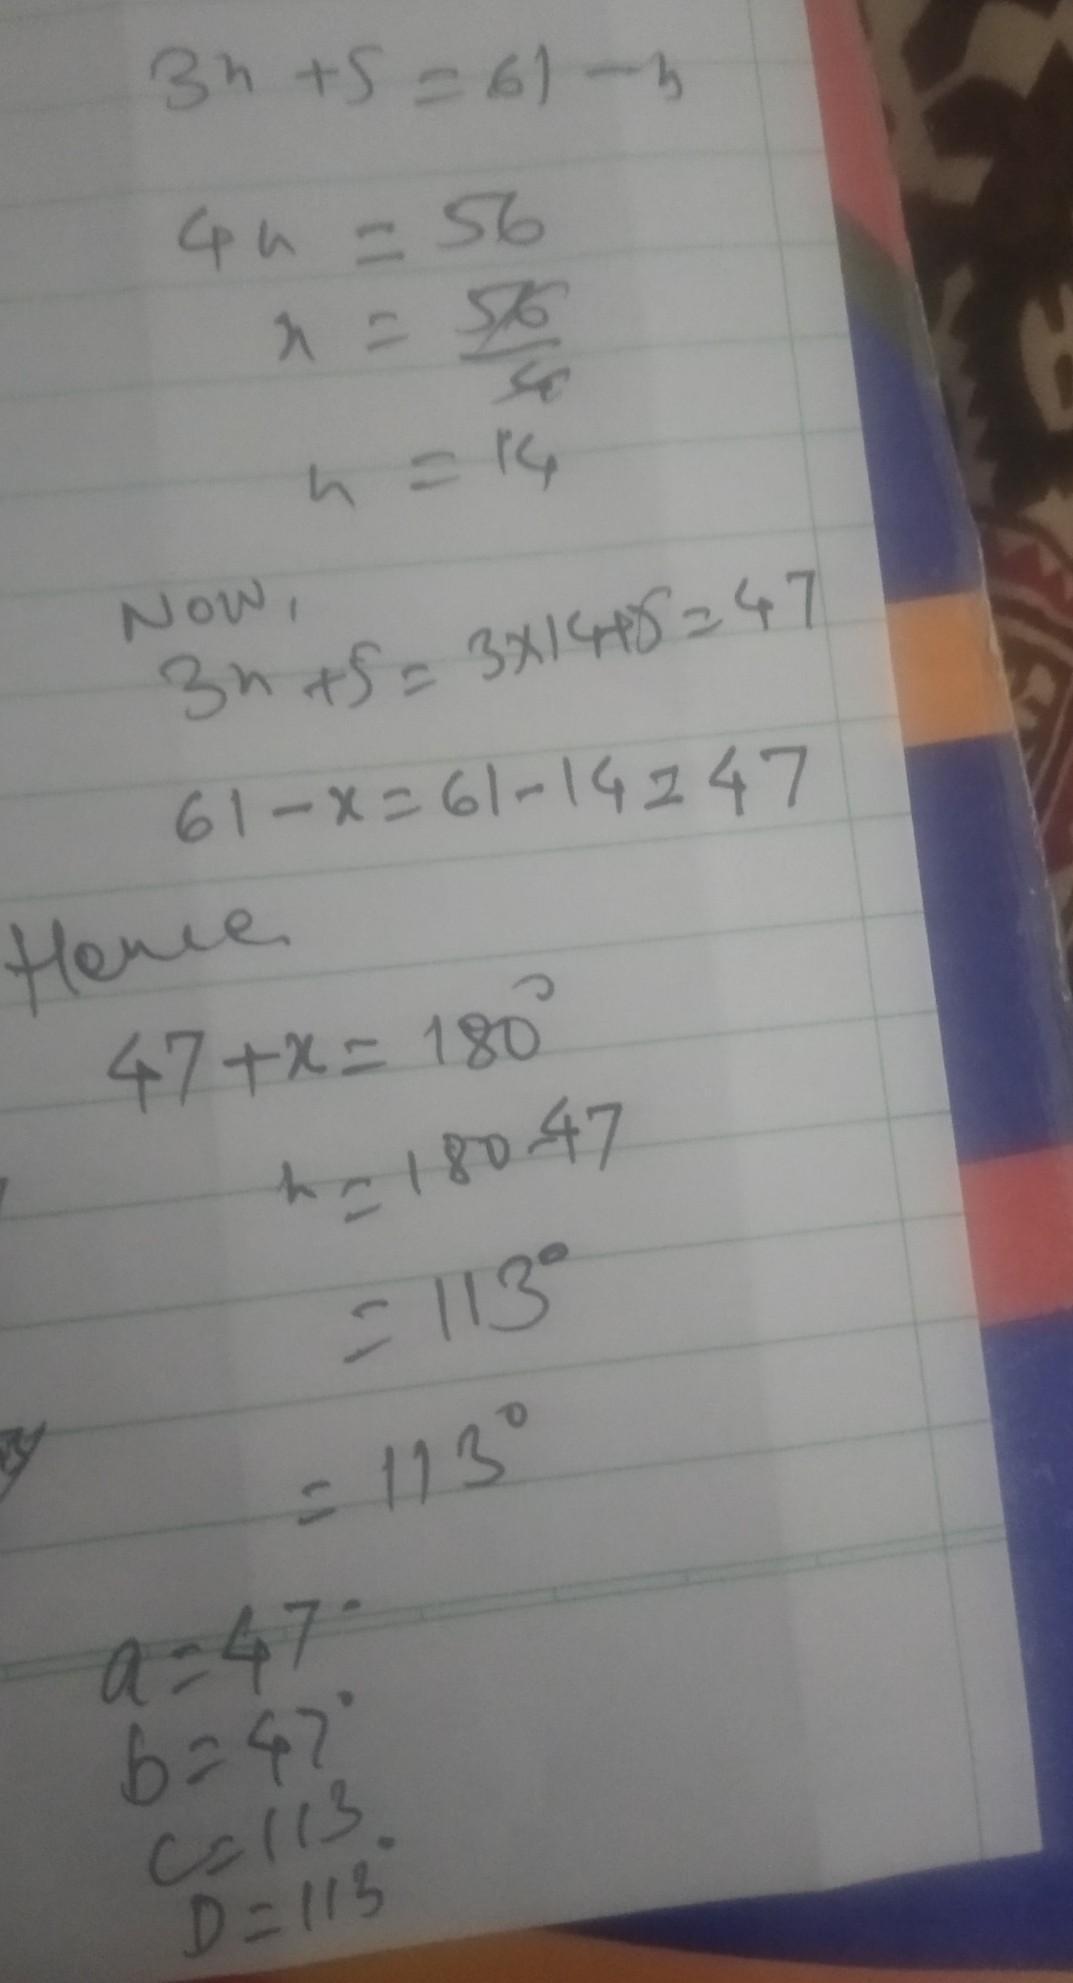 3x + 5 = 61 - x
4x = 56
x = 56/4
x = 14
Now,
3x + 5 = 3x14+5 = 47
61 - x = 61 - 14 = 47
Hence
47 + x = 180°
x = 180-47
= 113°
= 113°
a = 47°
b = 47°
c = 113.
D = 113